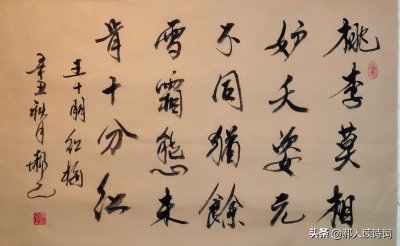 桃李莫相
妒夭姿元
不同猶餘
雪霜態未
肯十分紅
王十朋紅梅
辛丑秋月
头条 @郝人读诗词